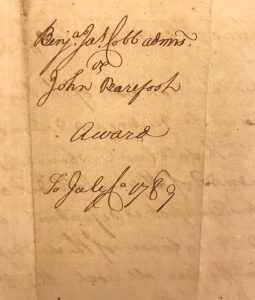 Benja. Jas. Cobb admr.
vs
John Barefoot
Award
To July Co. 1789